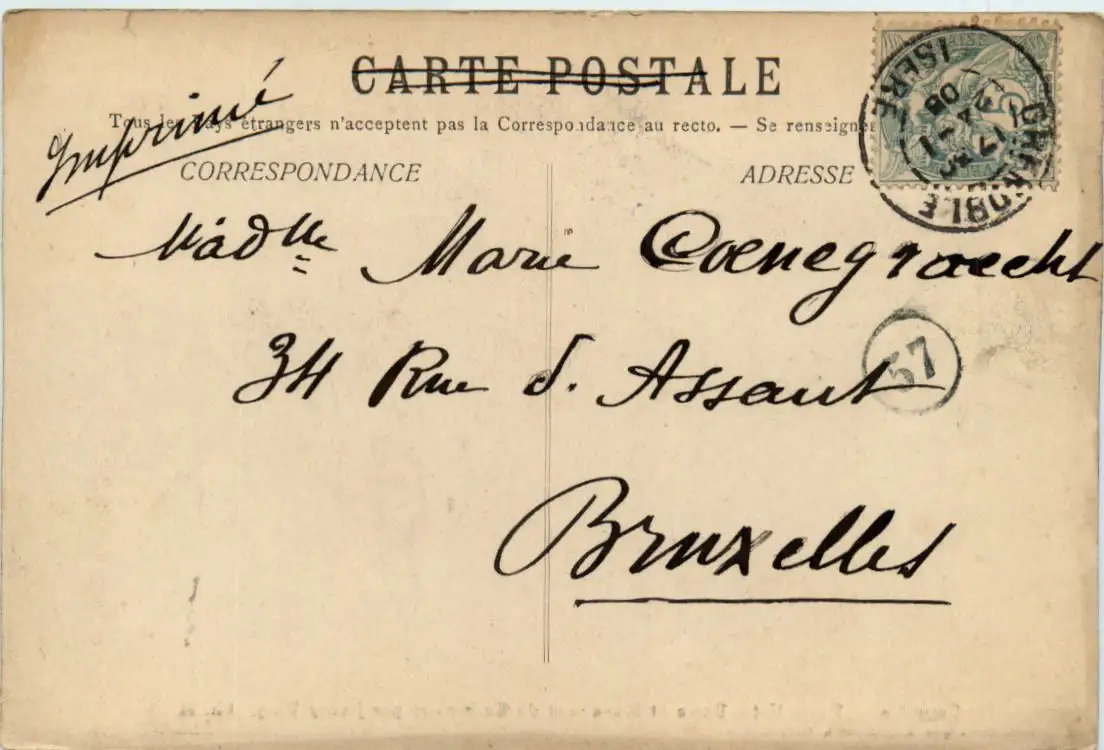 CARTE POSTALE
Imprimé
Tous les pays étrangers n'acceptent pas la Correspondance au recto. — Se renseigner
CORRESPONDANCE
ADRESSE
GRENOBLE
ISERE
08
5
Madlle Marie Coenegraecht
34 Rue d. Assaut
57
Bruxelles